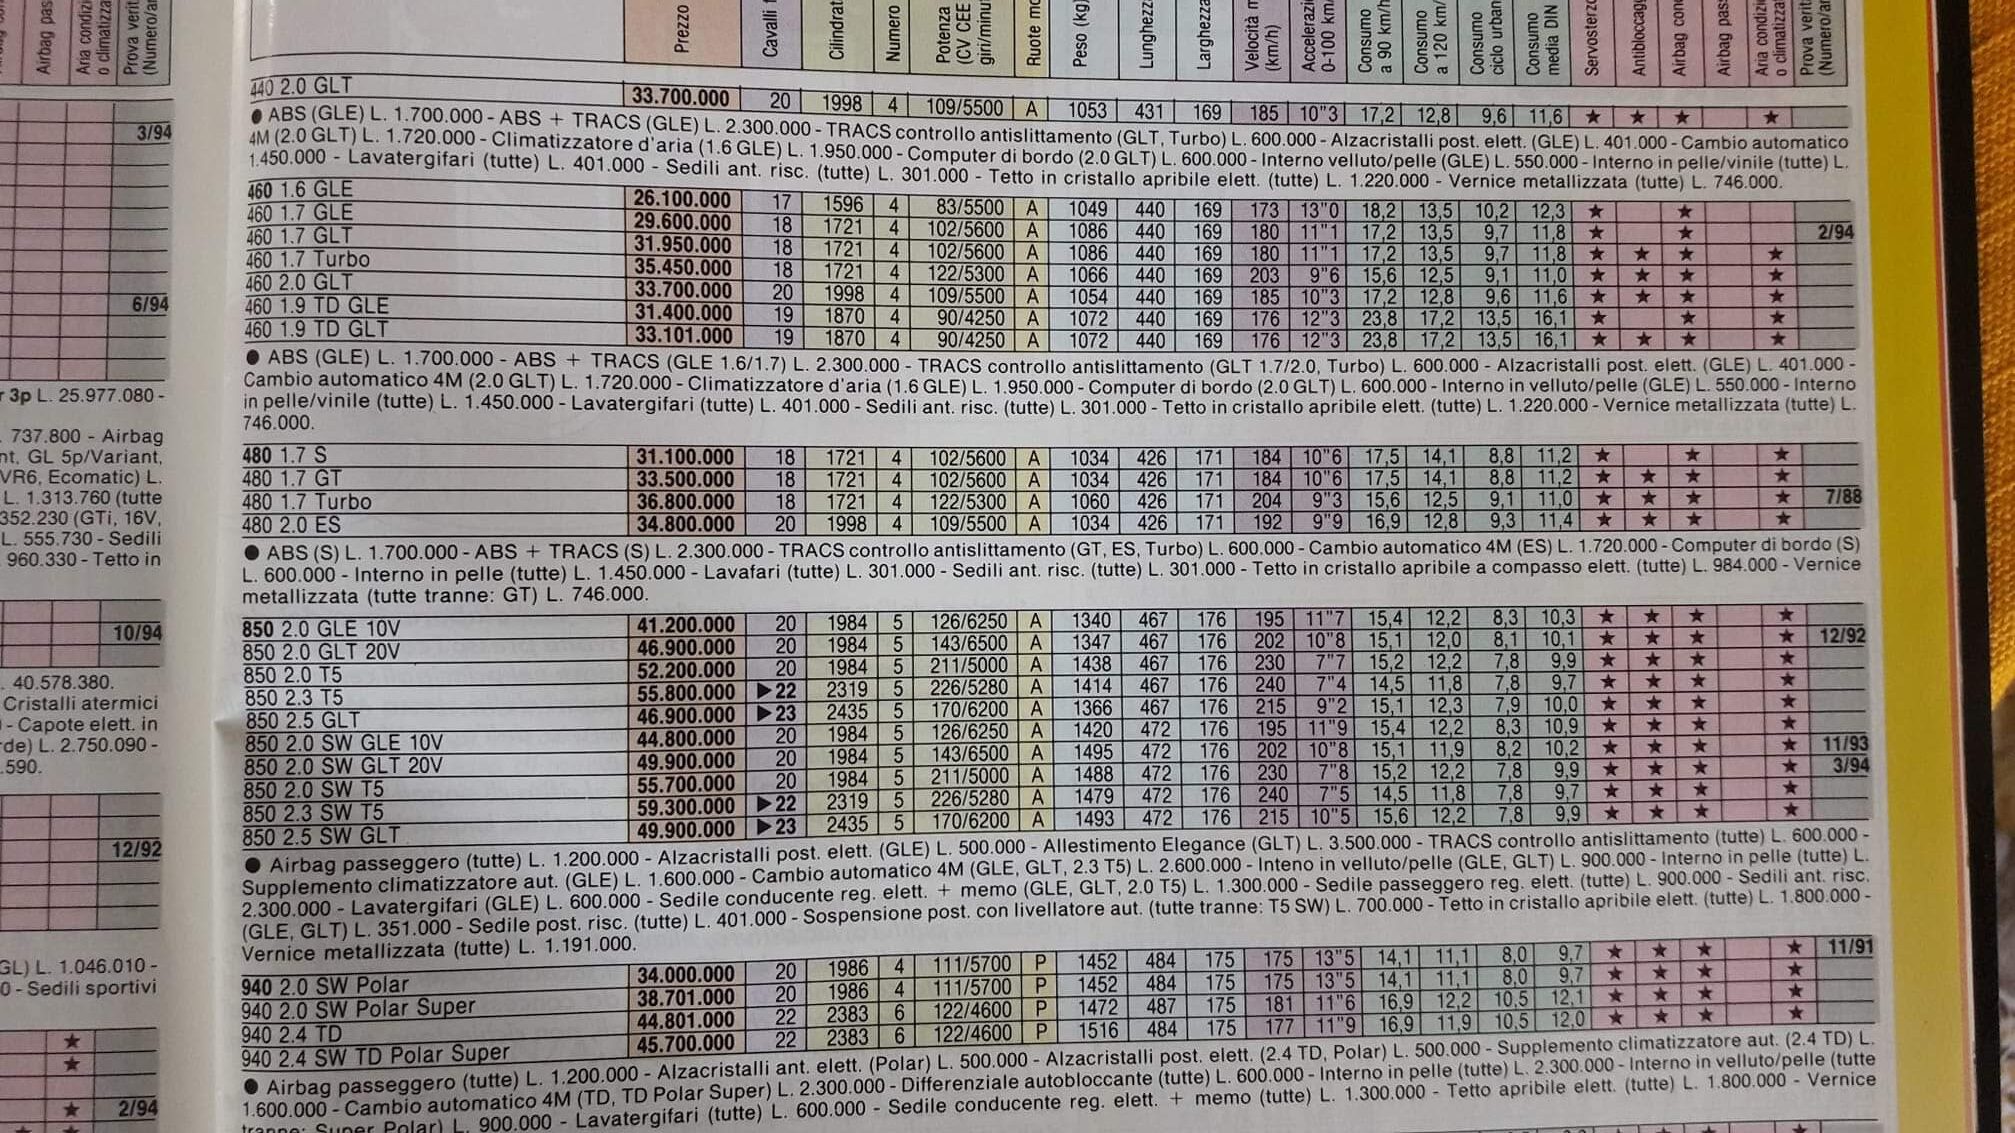 Airbag pas
Aria condizi
o climatizza
Prova verit
(Numero/ar
3/94
6/94
r 3p L. 25.977.080 -
. 737.800 - Airbag
nt, GL 5p/Variant,
VR6, Ecomatic) L.
L. 1.313.760 (tutte
352.230 (GTi, 16V,
L. 555.730 - Sedili
960.330 - Tetto in
10/94
. 40.578.380.
Cristalli atermici
- Capote elett. in
rde) L. 2.750.090 -
.590.
12/92
GL) L. 1.046.010 -
0 - Sedili sportivi
★
★
★ 2/94
Prezzo
Cavalli f
Cilindrat
Numero
Potenza
(CV CEE
giri/minut
Ruote mo
Peso (kg)
Lunghezz
Larghezza
Velocità m
(km/h)
Accelerazi
0-100 km/
Consumo
a 90 km/h
Consumo
a 120 km/
Consumo
ciclo urban
Consumo
media DIN
Servosterzo
Antibloccag
Airbag con
Airbag pas
Aria condizi
o climatizza
Prova verit
(Numero/ar
440 2.0 GLT 33.700.000 20 1998 4 109/5500 A 1053 431 169 185 10"3 17,2 12,8 9,6 11,6 ★ ★ ★ ★
● ABS (GLE) L. 1.700.000 - ABS + TRACS (GLE) L. 2.300.000 - TRACS controllo antislittamento (GLT, Turbo) L. 600.000 - Alzacristalli post. elett. (GLE) L. 401.000 - Cambio automatico
4M (2.0 GLT) L. 1.720.000 - Climatizzatore d'aria (1.6 GLE) L. 1.950.000 - Computer di bordo (2.0 GLT) L. 600.000 - Interno velluto/pelle (GLE) L. 550.000 - Interno in pelle/vinile (tutte) L.
1.450.000 - Lavatergifari (tutte) L. 401.000 - Sedili ant. risc. (tutte) L. 301.000 - Tetto in cristallo apribile elett. (tutte) L. 1.220.000 - Vernice metallizzata (tutte) L. 746.000.
460 1.6 GLE 26.100.000 17 1596 4 83/5500 A 1049 440 169 173 13"0 18,2 13,5 10,2 12,3 ★ ★
460 1.7 GLE 29.600.000 18 1721 4 102/5600 A 1086 440 169 180 11"1 17,2 13,5 9,7 11,8 ★ ★ 2/94
460 1.7 GLT 31.950.000 18 1721 4 102/5600 A 1086 440 169 180 11"1 17,2 13,5 9,7 11,8 ★ ★ ★ ★
460 1.7 Turbo 35.450.000 18 1721 4 122/5300 A 1066 440 169 203 9"6 15,6 12,5 9,1 11,0 ★ ★ ★ ★
460 2.0 GLT 33.700.000 20 1998 4 109/5500 A 1054 440 169 185 10"3 17,2 12,8 9,6 11,6 ★ ★ ★ ★
460 1.9 TD GLE 31.400.000 19 1870 4 90/4250 A 1072 440 169 176 12"3 23,8 17,2 13,5 16,1 ★ ★ ★
460 1.9 TD GLT 33.101.000 19 1870 4 90/4250 A 1072 440 169 176 12"3 23,8 17,2 13,5 16,1 ★ ★ ★ ★
● ABS (GLE) L. 1.700.000 - ABS + TRACS (GLE 1.6/1.7) L. 2.300.000 - TRACS controllo antislittamento (GLT 1.7/2.0, Turbo) L. 600.000 - Alzacristalli post. elett. (GLE) L. 401.000 -
Cambio automatico 4M (2.0 GLT) L. 1.720.000 - Climatizzatore d'aria (1.6 GLE) L. 1.950.000 - Computer di bordo (2.0 GLT) L. 600.000 - Interno in velluto/pelle (GLE) L. 550.000 - Interno
in pelle/vinile (tutte) L. 1.450.000 - Lavatergifari (tutte) L. 401.000 - Sedili ant. risc. (tutte) L. 301.000 - Tetto in cristallo apribile elett. (tutte) L. 1.220.000 - Vernice metallizzata (tutte) L.
746.000.
480 1.7 S 31.100.000 18 1721 4 102/5600 A 1034 426 171 184 10"6 17,5 14,1 8,8 11,2 ★ ★ ★
480 1.7 GT 33.500.000 18 1721 4 102/5600 A 1034 426 171 184 10"6 17,5 14,1 8,8 11,2 ★ ★ ★ ★
480 1.7 Turbo 36.800.000 18 1721 4 122/5300 A 1060 426 171 204 9"3 15,6 12,5 9,1 11,0 ★ ★ ★ ★ 7/88
480 2.0 ES 34.800.000 20 1998 4 109/5500 A 1034 426 171 192 9"9 16,9 12,8 9,3 11,4 ★ ★ ★ ★
● ABS (S) L. 1.700.000 - ABS + TRACS (S) L. 2.300.000 - TRACS controllo antislittamento (GT, ES, Turbo) L. 600.000 - Cambio automatico 4M (ES) L. 1.720.000 - Computer di bordo (S)
L. 600.000 - Interno in pelle (tutte) L. 1.450.000 - Lavafari (tutte) L. 301.000 - Sedili ant. risc. (tutte) L. 301.000 - Tetto in cristallo apribile a compasso elett. (tutte) L. 984.000 - Vernice
metallizzata (tutte tranne: GT) L. 746.000.
850 2.0 GLE 10V 41.200.000 20 1984 5 126/6250 A 1340 467 176 195 11"7 15,4 12,2 8,3 10,3 ★ ★ ★ ★
850 2.0 GLT 20V 46.900.000 20 1984 5 143/6500 A 1347 467 176 202 10"8 15,1 12,0 8,1 10,1 ★ ★ ★ ★ 12/92
850 2.0 T5 52.200.000 20 1984 5 211/5000 A 1438 467 176 230 7"7 15,2 12,2 7,8 9,9 ★ ★ ★ ★
850 2.3 T5 55.800.000 ▶22 2319 5 226/5280 A 1414 467 176 240 7"4 14,5 11,8 7,8 9,7 ★ ★ ★ ★
850 2.5 GLT 46.900.000 ▶23 2435 5 170/6200 A 1366 467 176 215 9"2 15,1 12,3 7,9 10,0 ★ ★ ★ ★
850 2.0 SW GLE 10V 44.800.000 20 1984 5 126/6250 A 1420 472 176 195 11"9 15,4 12,2 8,3 10,9 ★ ★ ★ ★
850 2.0 SW GLT 20V 49.900.000 20 1984 5 143/6500 A 1495 472 176 202 10"8 15,1 11,9 8,2 10,2 ★ ★ ★ ★ 11/93
850 2.0 SW T5 55.700.000 20 1984 5 211/5000 A 1488 472 176 230 7"8 15,2 12,2 7,8 9,9 ★ ★ ★ ★ 3/94
850 2.3 SW T5 59.300.000 ▶22 2319 5 226/5280 A 1479 472 176 240 7"5 14,5 11,8 7,8 9,7 ★ ★ ★ ★
850 2.5 SW GLT 49.900.000 ▶23 2435 5 170/6200 A 1493 472 176 215 10"5 15,6 12,2 7,8 9,9 ★ ★ ★ ★
● Airbag passeggero (tutte) L. 1.200.000 - Alzacristalli post. elett. (GLE) L. 500.000 - Allestimento Elegance (GLT) L. 3.500.000 - TRACS controllo antislittamento (tutte) L. 600.000 -
Supplemento climatizzatore aut. (GLE) L. 1.600.000 - Cambio automatico 4M (GLE, GLT, 2.3 T5) L. 2.600.000 - Inteno in velluto/pelle (GLE, GLT) L. 900.000 - Interno in pelle (tutte) L.
2.300.000 - Lavatergifari (GLE) L. 600.000 - Sedile conducente reg. elett. + memo (GLE, GLT, 2.0 T5) L. 1.300.000 - Sedile passeggero reg. elett. (tutte) L. 900.000 - Sedili ant. risc.
(GLE, GLT) L. 351.000 - Sedile post. risc. (tutte) L. 401.000 - Sospensione post. con livellatore aut. (tutte tranne: T5 SW) L. 700.000 - Tetto in cristallo apribile elett. (tutte) L. 1.800.000 -
Vernice metallizzata (tutte) L. 1.191.000.
940 2.0 SW Polar 34.000.000 20 1986 4 111/5700 P 1452 484 175 175 13"5 14,1 11,1 8,0 9,7 ★ ★ ★ ★ 11/91
940 2.0 SW Polar Super 38.701.000 20 1986 4 111/5700 P 1452 484 175 175 13"5 14,1 11,1 8,0 9,7 ★ ★ ★ ★
940 2.4 TD 44.801.000 22 2383 6 122/4600 P 1472 487 175 181 11"6 16,9 12,2 10,5 12,1 ★ ★ ★ ★
940 2.4 SW TD Polar Super 45.700.000 22 2383 6 122/4600 P 1516 484 175 177 11"9 16,9 11,9 10,5 12,0 ★ ★ ★ ★
● Airbag passeggero (tutte) L. 1.200.000 - Alzacristalli ant. elett. (Polar) L. 500.000 - Alzacristalli post. elett. (2.4 TD, Polar) L. 500.000 - Supplemento climatizzatore aut. (2.4 TD) L.
1.600.000 - Cambio automatico 4M (TD, TD Polar Super) L. 2.300.000 - Differenziale autobloccante (tutte) L. 600.000 - Interno in pelle (tutte) L. 2.300.000 - Interno in velluto/pelle (tutte
tranne: Super Polar) L. 900.000 - Lavatergifari (tutte) L. 600.000 - Sedile conducente reg. elett. + memo (tutte) L. 1.300.000 - Tetto apribile elett. (tutte) L. 1.800.000 - Vernice